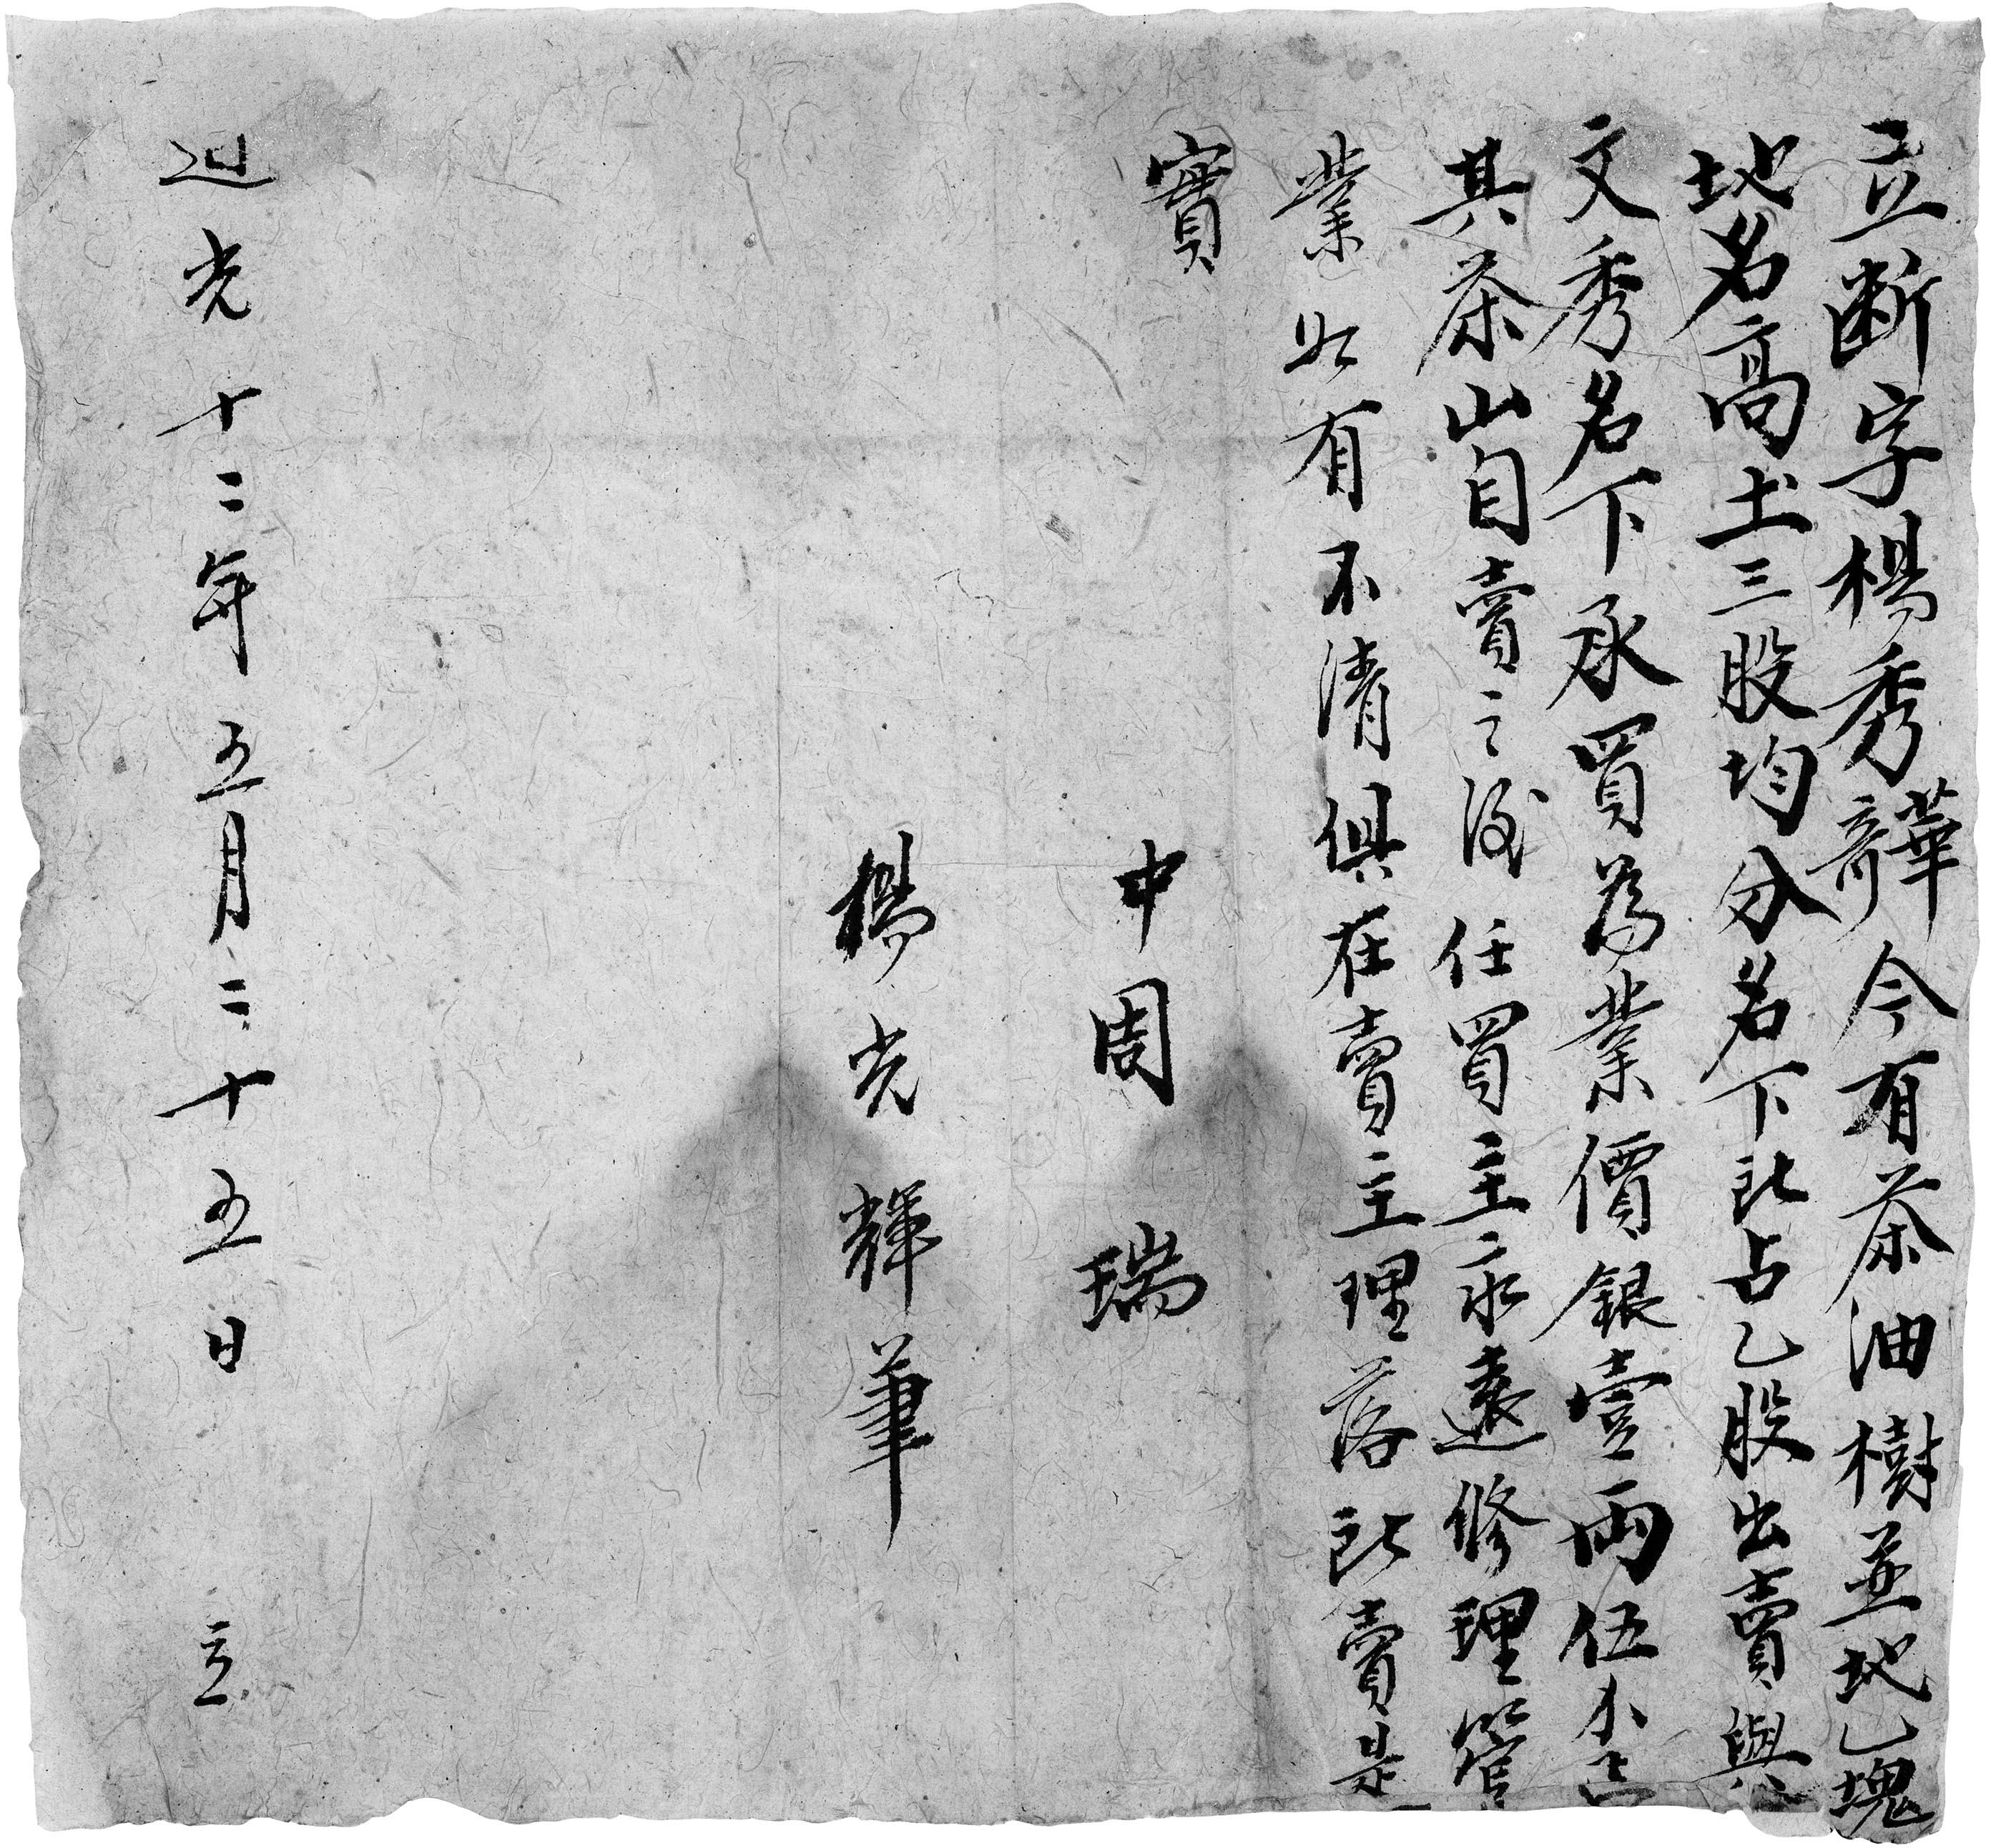 立断字楊秀辭華今有茶油樹並地乙塊
地名高土三股均分名下占乙股出賣與
文秀名下承買為業價銀壹両伍
其茶山自賣之後任買主永遠修理管
業如有不清俱在賣主理落賣是
實
中周瑞
楊光輝筆
道光十二年五月二十五日立